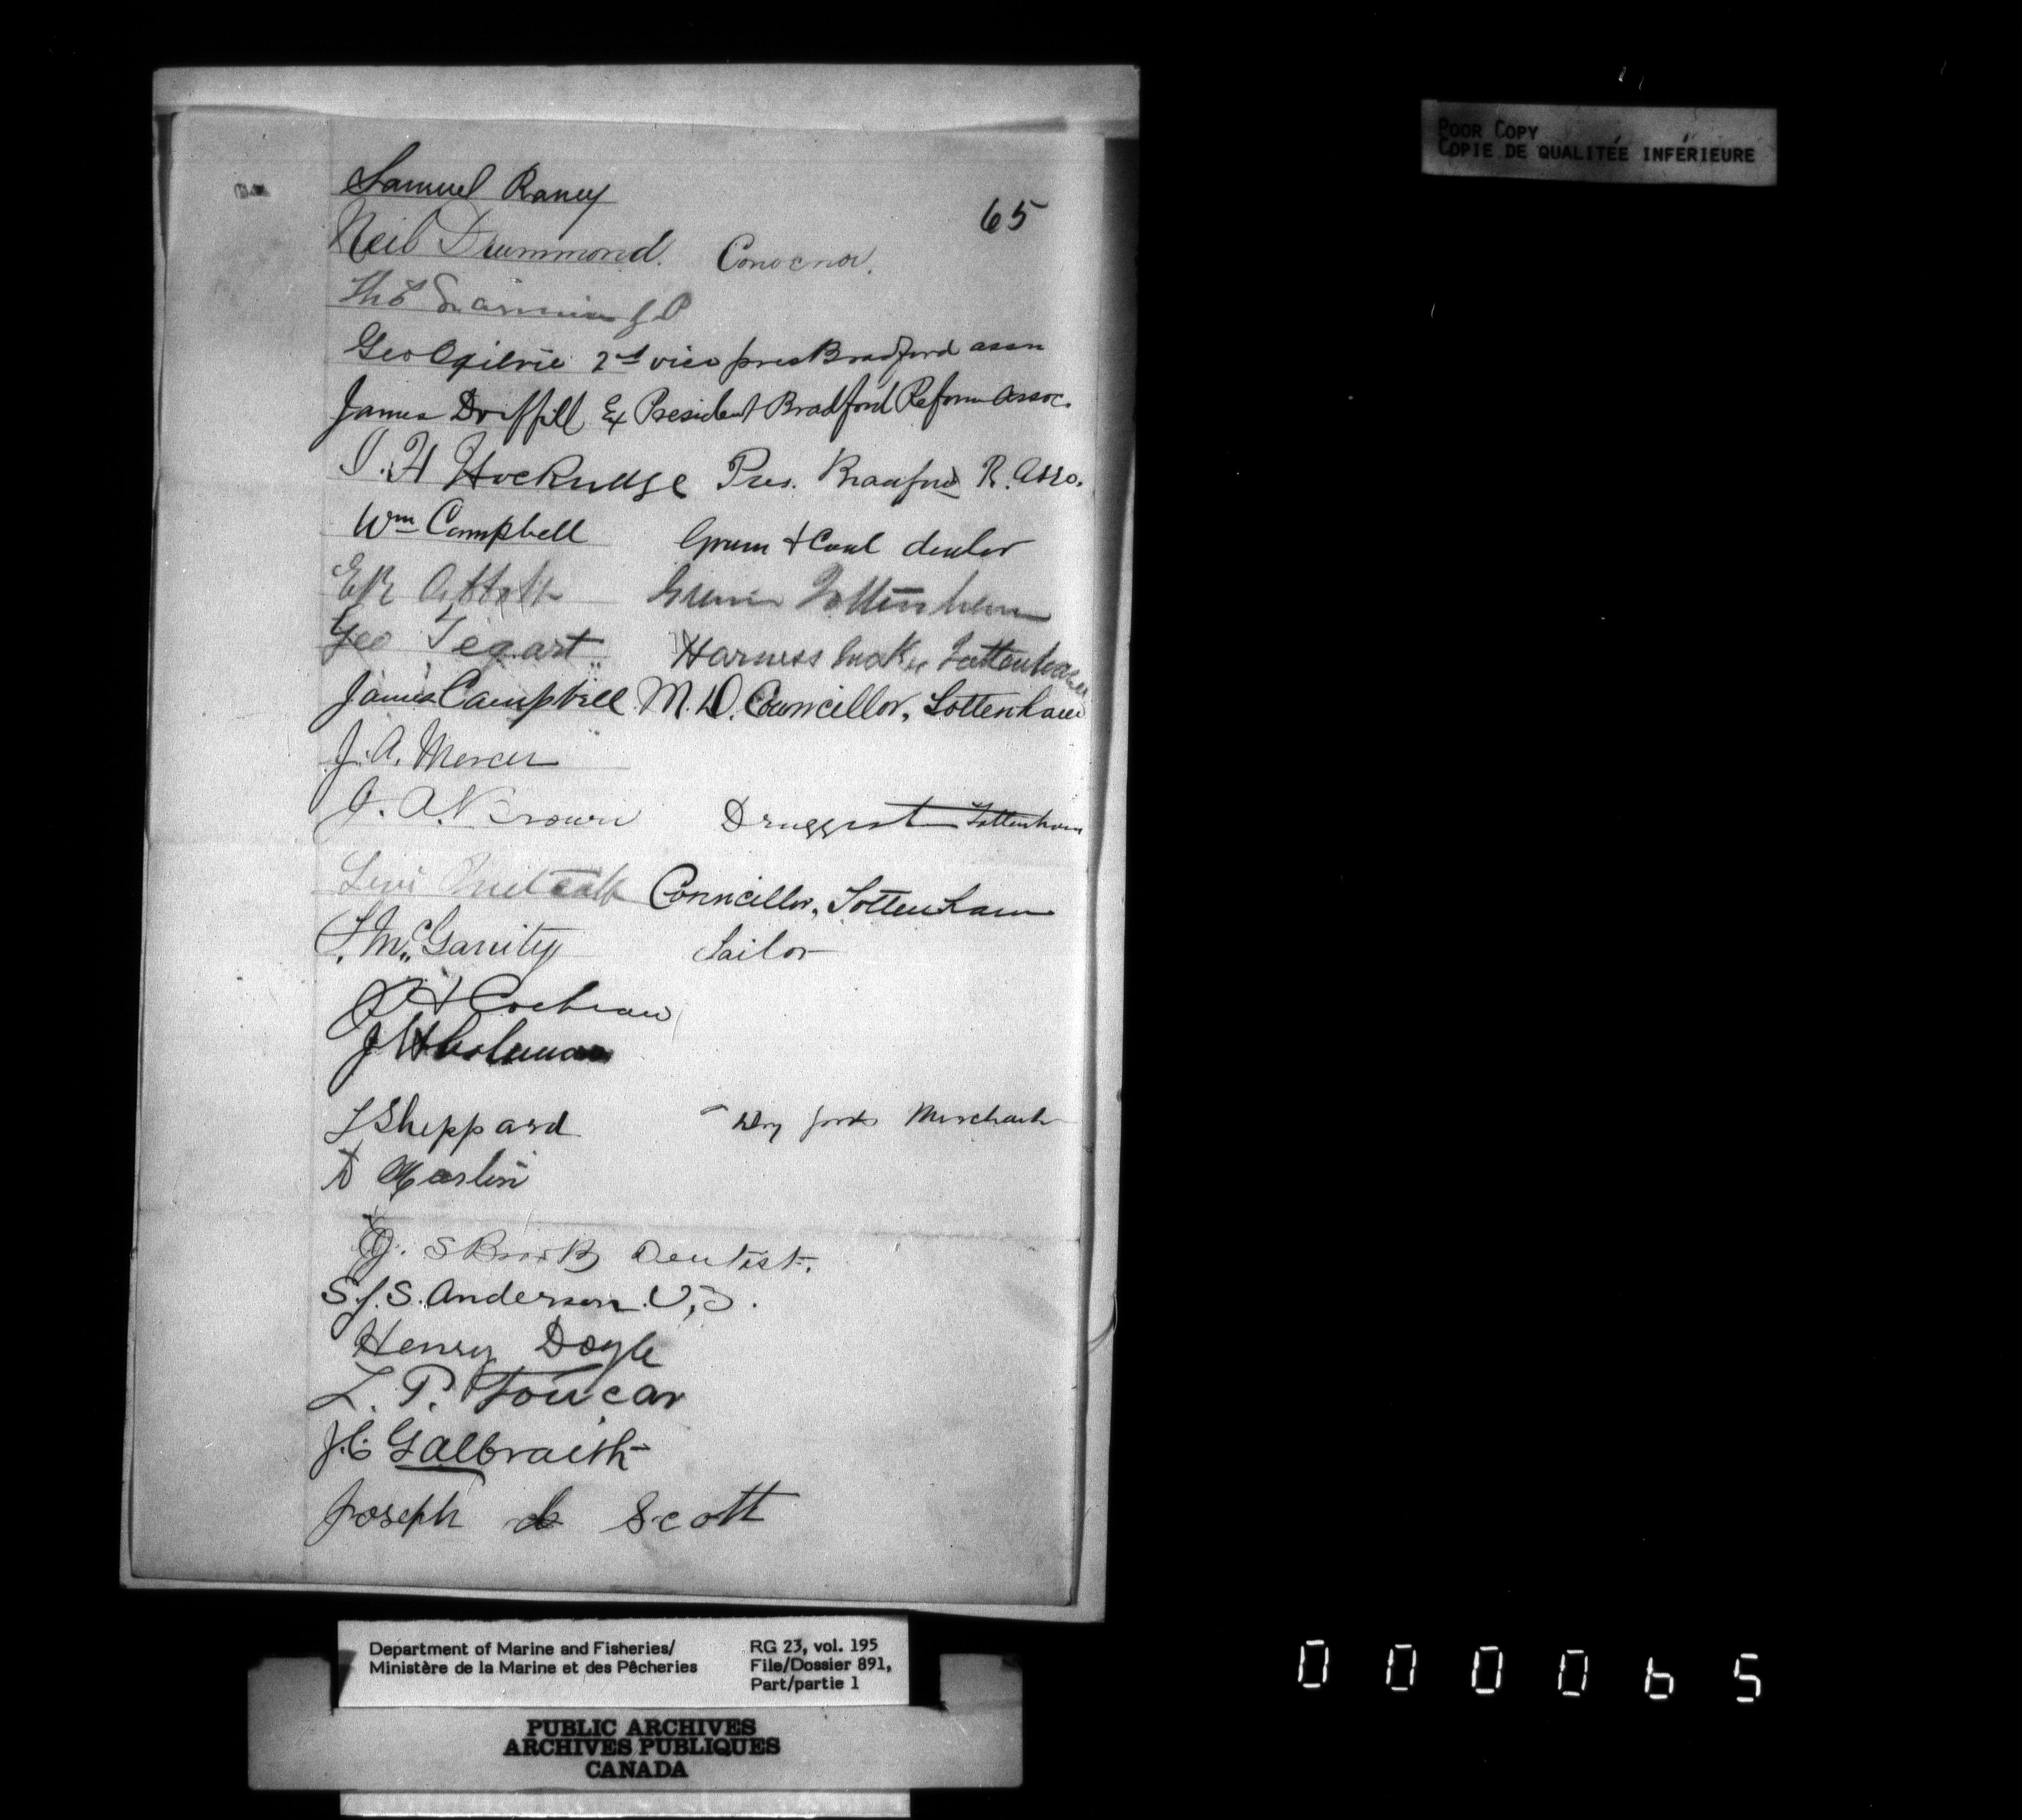 POOR COPY
COPIE DE QUALITÉE INFÉRIEURE
65
Samuel Raney
Neil Drummond. Convenor.
Geo Ogilvie 2nd vice pres Bradford assn
James Driffill Ex President Bradford Reform Assoc.
Pres. Bradford R. Asso.
Wm Campbell Grain & Coal dealer
Tottenham
Geo Tegart Harness maker Tottenham
James Campbell M.D. Councillor, Tottenham
J. A. Mercer
J. A. Brown Druggist Tottenham
Levi Metcalf Councillor, Tottenham
McGarrity Tailor
Cochrane
Sheppard Dry goods Merchant
Dentist.
S. J. S. Anderson. V.S.
Henry Doyle
J. C Galbraith
Joseph Scott
Department of Marine and Fisheries/
Ministère de la Marine et des Pêcheries
RG 23, vol. 195
File/Dossier 891,
Part/partie 1
PUBLIC ARCHIVES
ARCHIVES PUBLIQUES
CANADA
000065